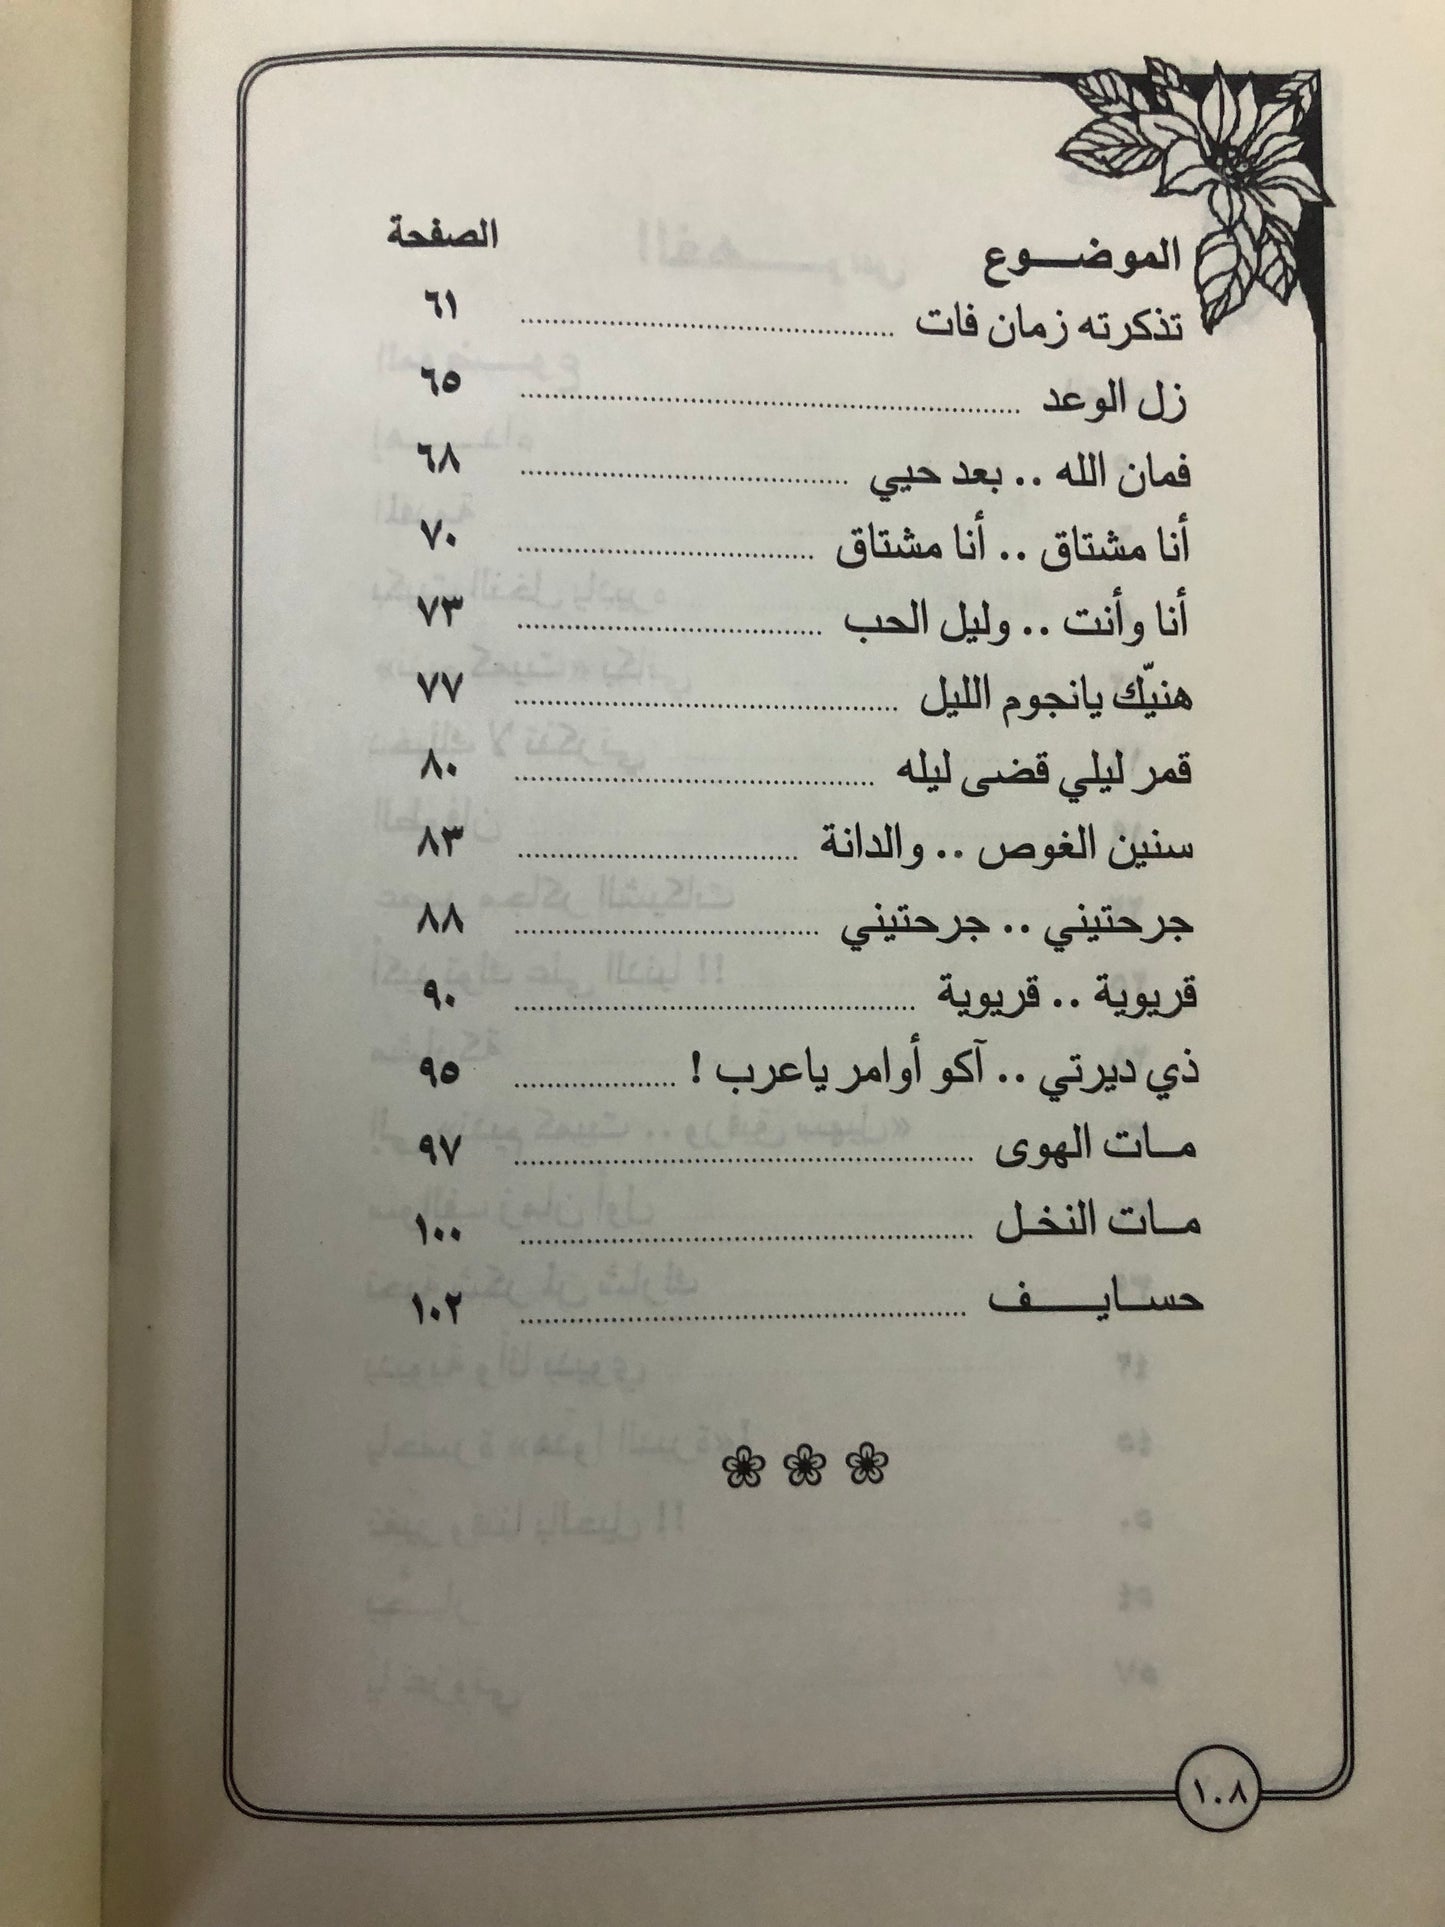 الموضــــوع الصفحة
تذكرته زمان فات ........................................ ٦١
زل الوعد ........................................ ٦٥
فمان الله .. بعد حيي ........................................ ٦٨
أنا مشتاق .. أنا مشتاق ........................................ ٧٠
أنا وأنت .. وليل الحب ........................................ ٧٣
هنيّك يانجوم الليل ........................................ ٧٧
قمر ليلي قضى ليله ........................................ ٨٠
سنين الغوص .. والدانة ........................................ ٨٣
جرحتيني .. جرحتيني ........................................ ٨٨
قريوية .. قريوية ........................................ ٩٠
ذي ديرتي .. آكو أوامر ياعرب ! .................... ٩٥
مـات الهوى ........................................ ٩٧
مـات النخـل ........................................ ١٠٠
حسـايـــــف ........................................ ١٠٢
١٠٨